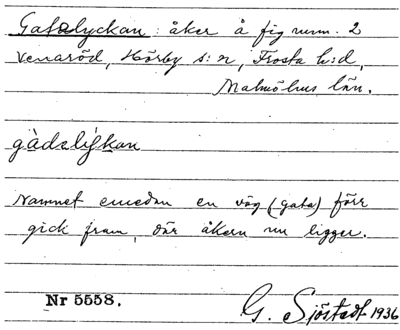 Gatelyckan: åker å fig num. 2
Venaröd, Hörby s:n, Frosta h:d,
Malmöhus län.
gàdelýkan
Namnet emedan en väg (gata) förr
gick fram, där åkern nu ligger.
Nr 5558.
G. Sjöstedt 1936